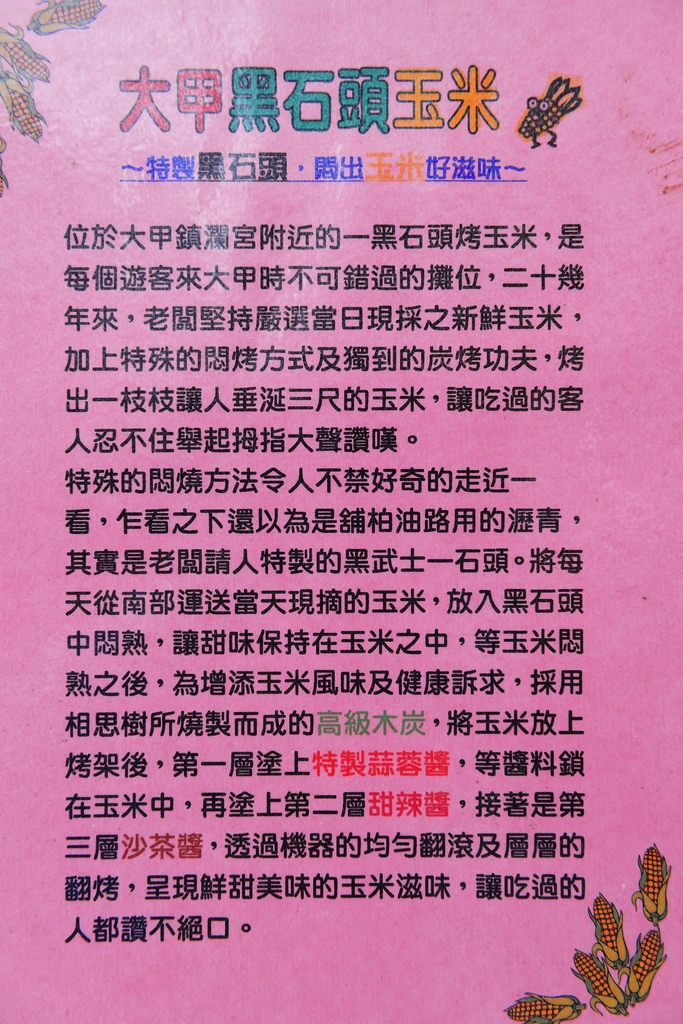 大甲黑石頭玉米
～特製黑石頭，悶出玉米好滋味～
位於大甲鎮瀾宮附近的一黑石頭烤玉米，是
每個遊客來大甲時不可錯過的攤位，二十幾
年來，老闆堅持嚴選當日現採之新鮮玉米，
加上特殊的悶烤方式及獨到的炭烤功夫，烤
出一枝枝讓人垂涎三尺的玉米，讓吃過的客
人忍不住舉起拇指大聲讚嘆。
特殊的悶燒方法令人不禁好奇的走近一
看，乍看之下還以為是舖柏油路用的瀝青，
其實是老闆請人特製的黑武士一石頭。將每
天從南部運送當天現摘的玉米，放入黑石頭
中悶熟，讓甜味保持在玉米之中，等玉米悶
熟之後，為增添玉米風味及健康訴求，採用
相思樹所燒製而成的高級木炭，將玉米放上
烤架後，第一層塗上特製蒜蓉醬，等醬料鎖
在玉米中，再塗上第二層甜辣醬，接著是第
三層沙茶醬，透過機器的均勻翻滾及層層的
翻烤，呈現鮮甜美味的玉米滋味，讓吃過的
人都讚不絕口。